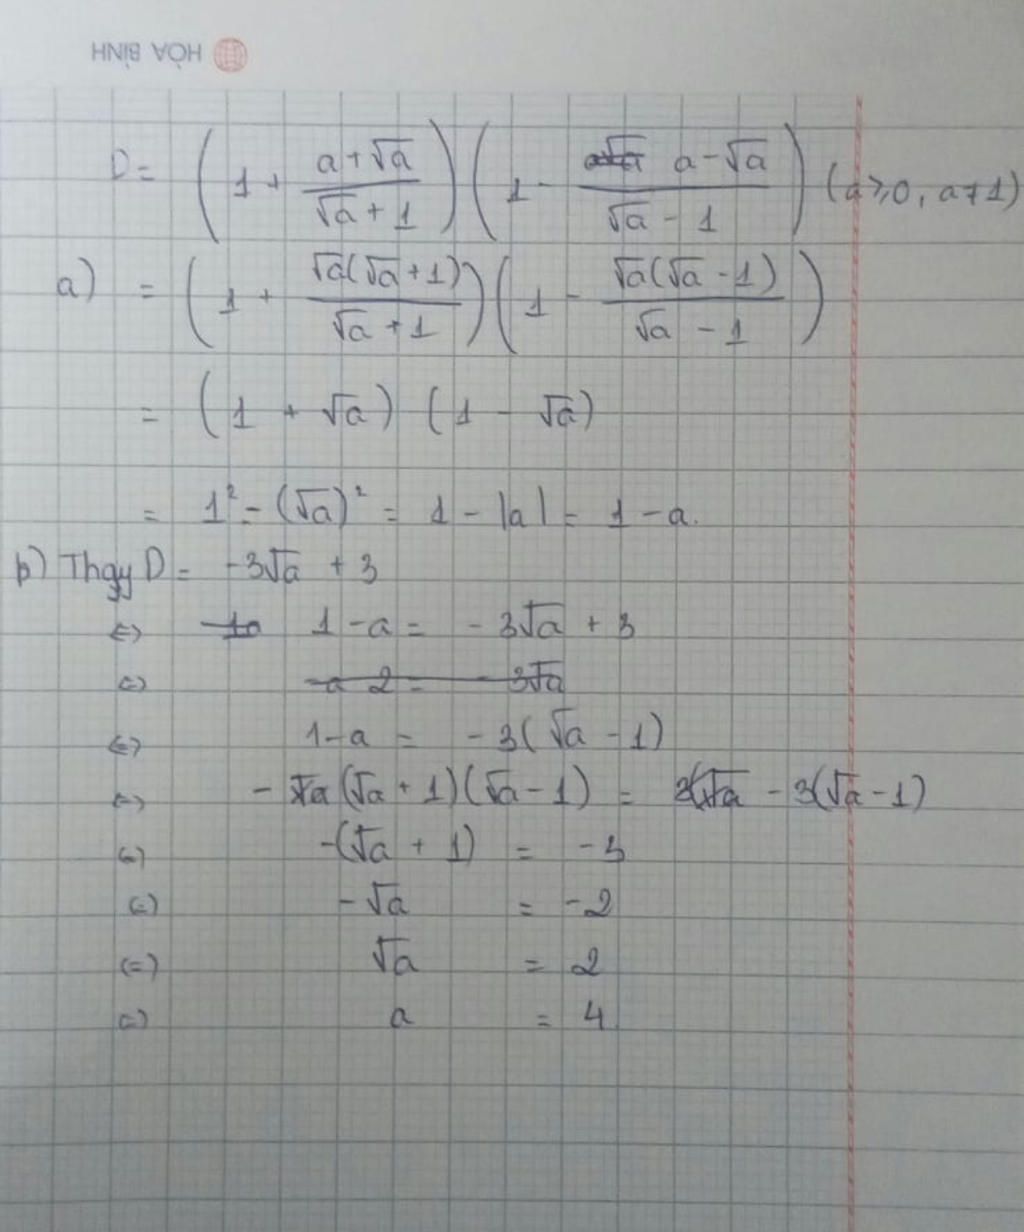 HÒA BÌNH
D = (1 + (a+√a)/(√a+1)) (1 - (a-√a)/(√a-1)) (a≥0, a≠1)
a) = (1 + √a(√a+1)/(√a+1)) (1 - √a(√a-1)/(√a-1))
= (1 + √a) (1 - √a)
= 1² - (√a)² = 1 - |a| = 1 - a.
b) Thay D = -3√a + 3
⇔ 1 - a = -3√a + 3
⇔ -a 2 = -3√a
⇔ 1 - a = -3(√a - 1)
⇔ -(√a + 1)(√a - 1) = -3(√a - 1)
⇔ -(√a + 1) = -3
⇔ -√a = -2
⇔ √a = 2
⇔ a = 4